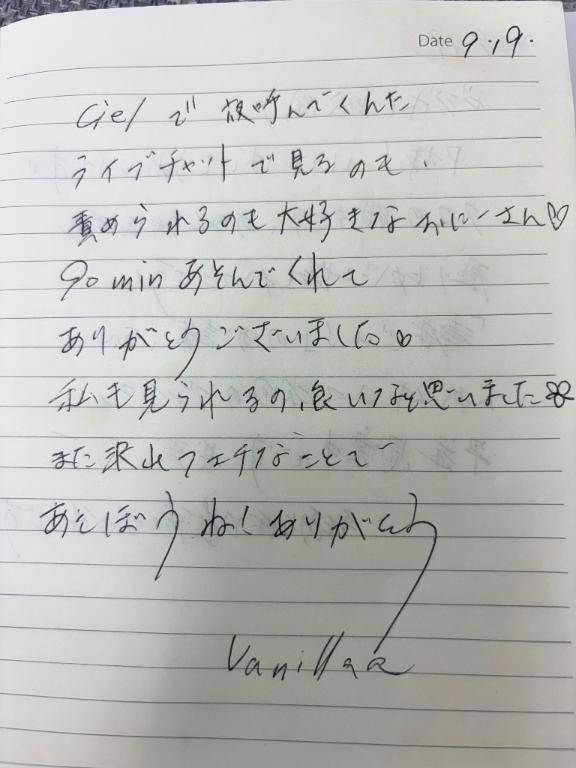 Date 9.19.
Cielで 夜呼んでくれた
ライブチャットで見るのも、
責められるのも大好きなおにーさん♡
90minあそんでくれて
ありがとうございました♡
私も見られるの、良いなと思いました
また沢山フェチなことで
あそぼうね!ありがとう
Vanilla